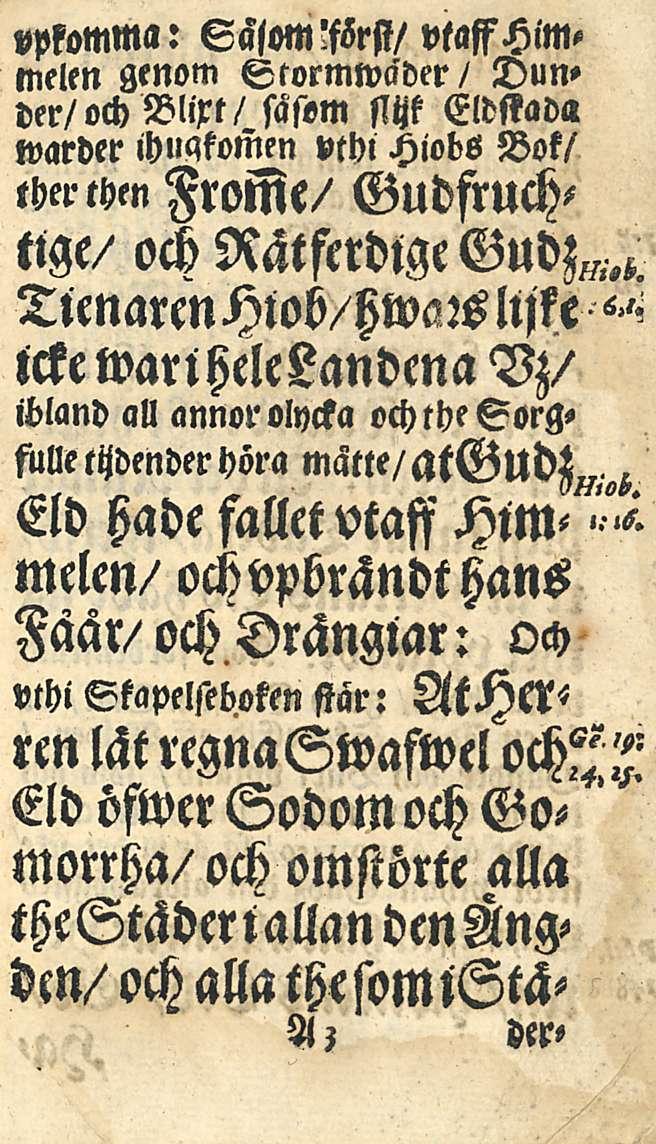 vpkomma: Såsom först/ vtaff Him-
melen genom Stormwäder/ Dun-
der/ och Blixt/ såsom slijk Eldskada
warder ihugkom̃en vthi Hiobs Bok/
ther then From̃e/ Gudfruch-
tige/ och Rätferdige Gudz
Hiob.
Tienaren Hiob/ hwars lijke
: 6,1.
icke war i hele Landena Vz/
ibland all annor olycka och the Sorg-
fulle tijdender höra måtte/ at Gudz
Hiob.
Eld hade fallet vtaff Him-
1: 16.
melen/ och vpbrändt hans
Fåår/ och Drängiar: Och
vthi Skapelseboken står: At Her-
ren lät regna Swafwel och
Gē. 19:
24, 25.
Eld öfwer Sodom och Go-
morrha/ och omstörte alla
the Städer i allan den Ängden-
den/ och alla the som i Stä-
A 3 der-